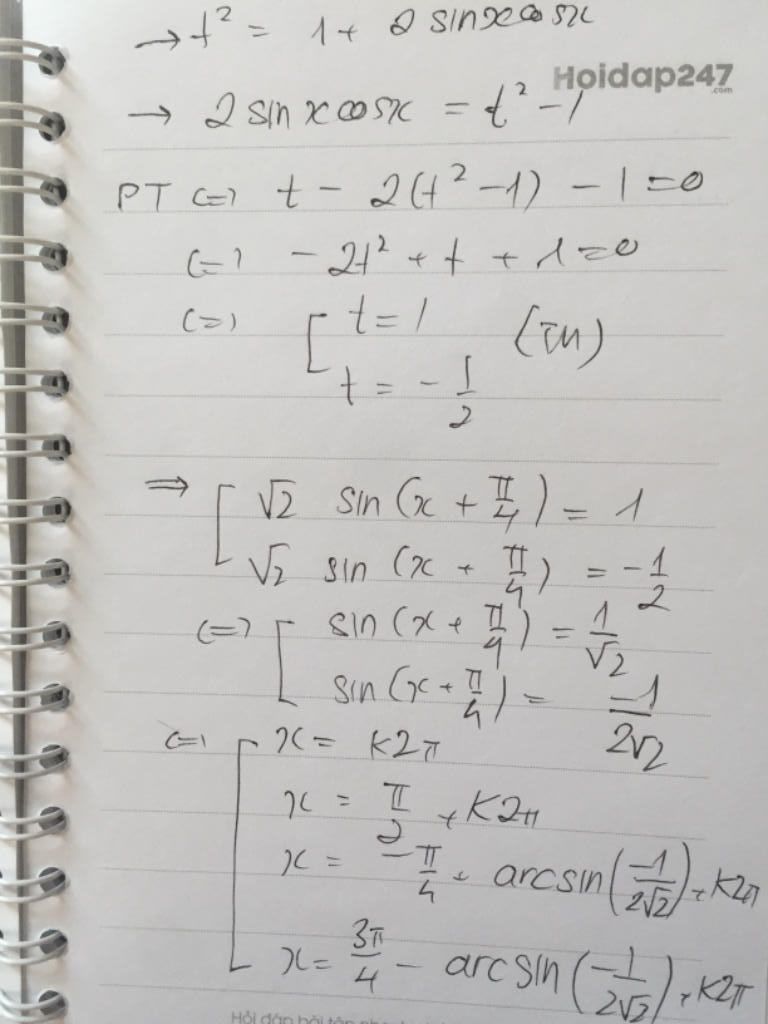 → t² = 1 + 2 sinxcosx
Hoidap247
.com
→ 2 sinxcosx = t² - 1
PT (=) t - 2(t² - 1) - 1 = 0
(=) - 2t² + t + 1 = 0
(=) [ t = 1 (TM)
t = - 1/2
⇒ [ √2 sin(x + π/4) = 1
√2 sin (x + π/4) = - 1/2
(=) [ sin(x + π/4) = 1/√2
sin(x + π/4) = -1/2√2
(=) [ x = K2π
x = π/2 + K2π
x = -π/4 + arcsin(-1/2√2) + K2π
x = 3π/4 - arcsin(-1/2√2) + K2π